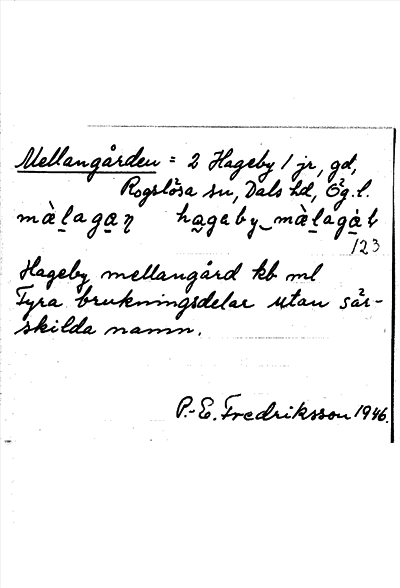 Mellangården = 2 Hageby 1 jr, gd,
Rogslösa sn, Dals hd, Ög. l.
mὰl̠aga̠ƞ ha̠gaby_mὰl̠agȧ̠ƚ
123
Hageby mellangård kb ml
Fyra brukningsdelar utan sär-
skilda namn.
P.-E. Fredriksson 1946.